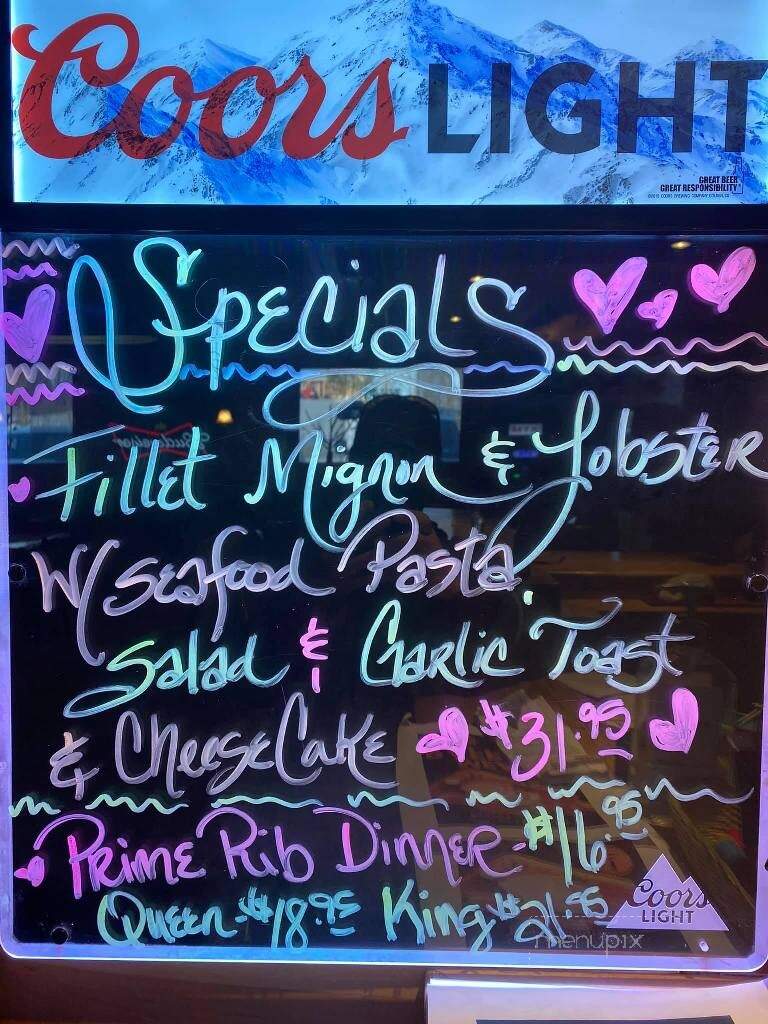 Coors LIGHT
GREAT BEER
GREAT RESPONSIBILITY
Specials
Fillet Mignon & Lobster
W/ Seafood Pasta,
Salad & Garlic Toast
& CheeseCake $31.95
Prime Rib Dinner - $16.95
Queen - $18.95 King $21.95
Coors
LIGHT
menupix
Budweiser